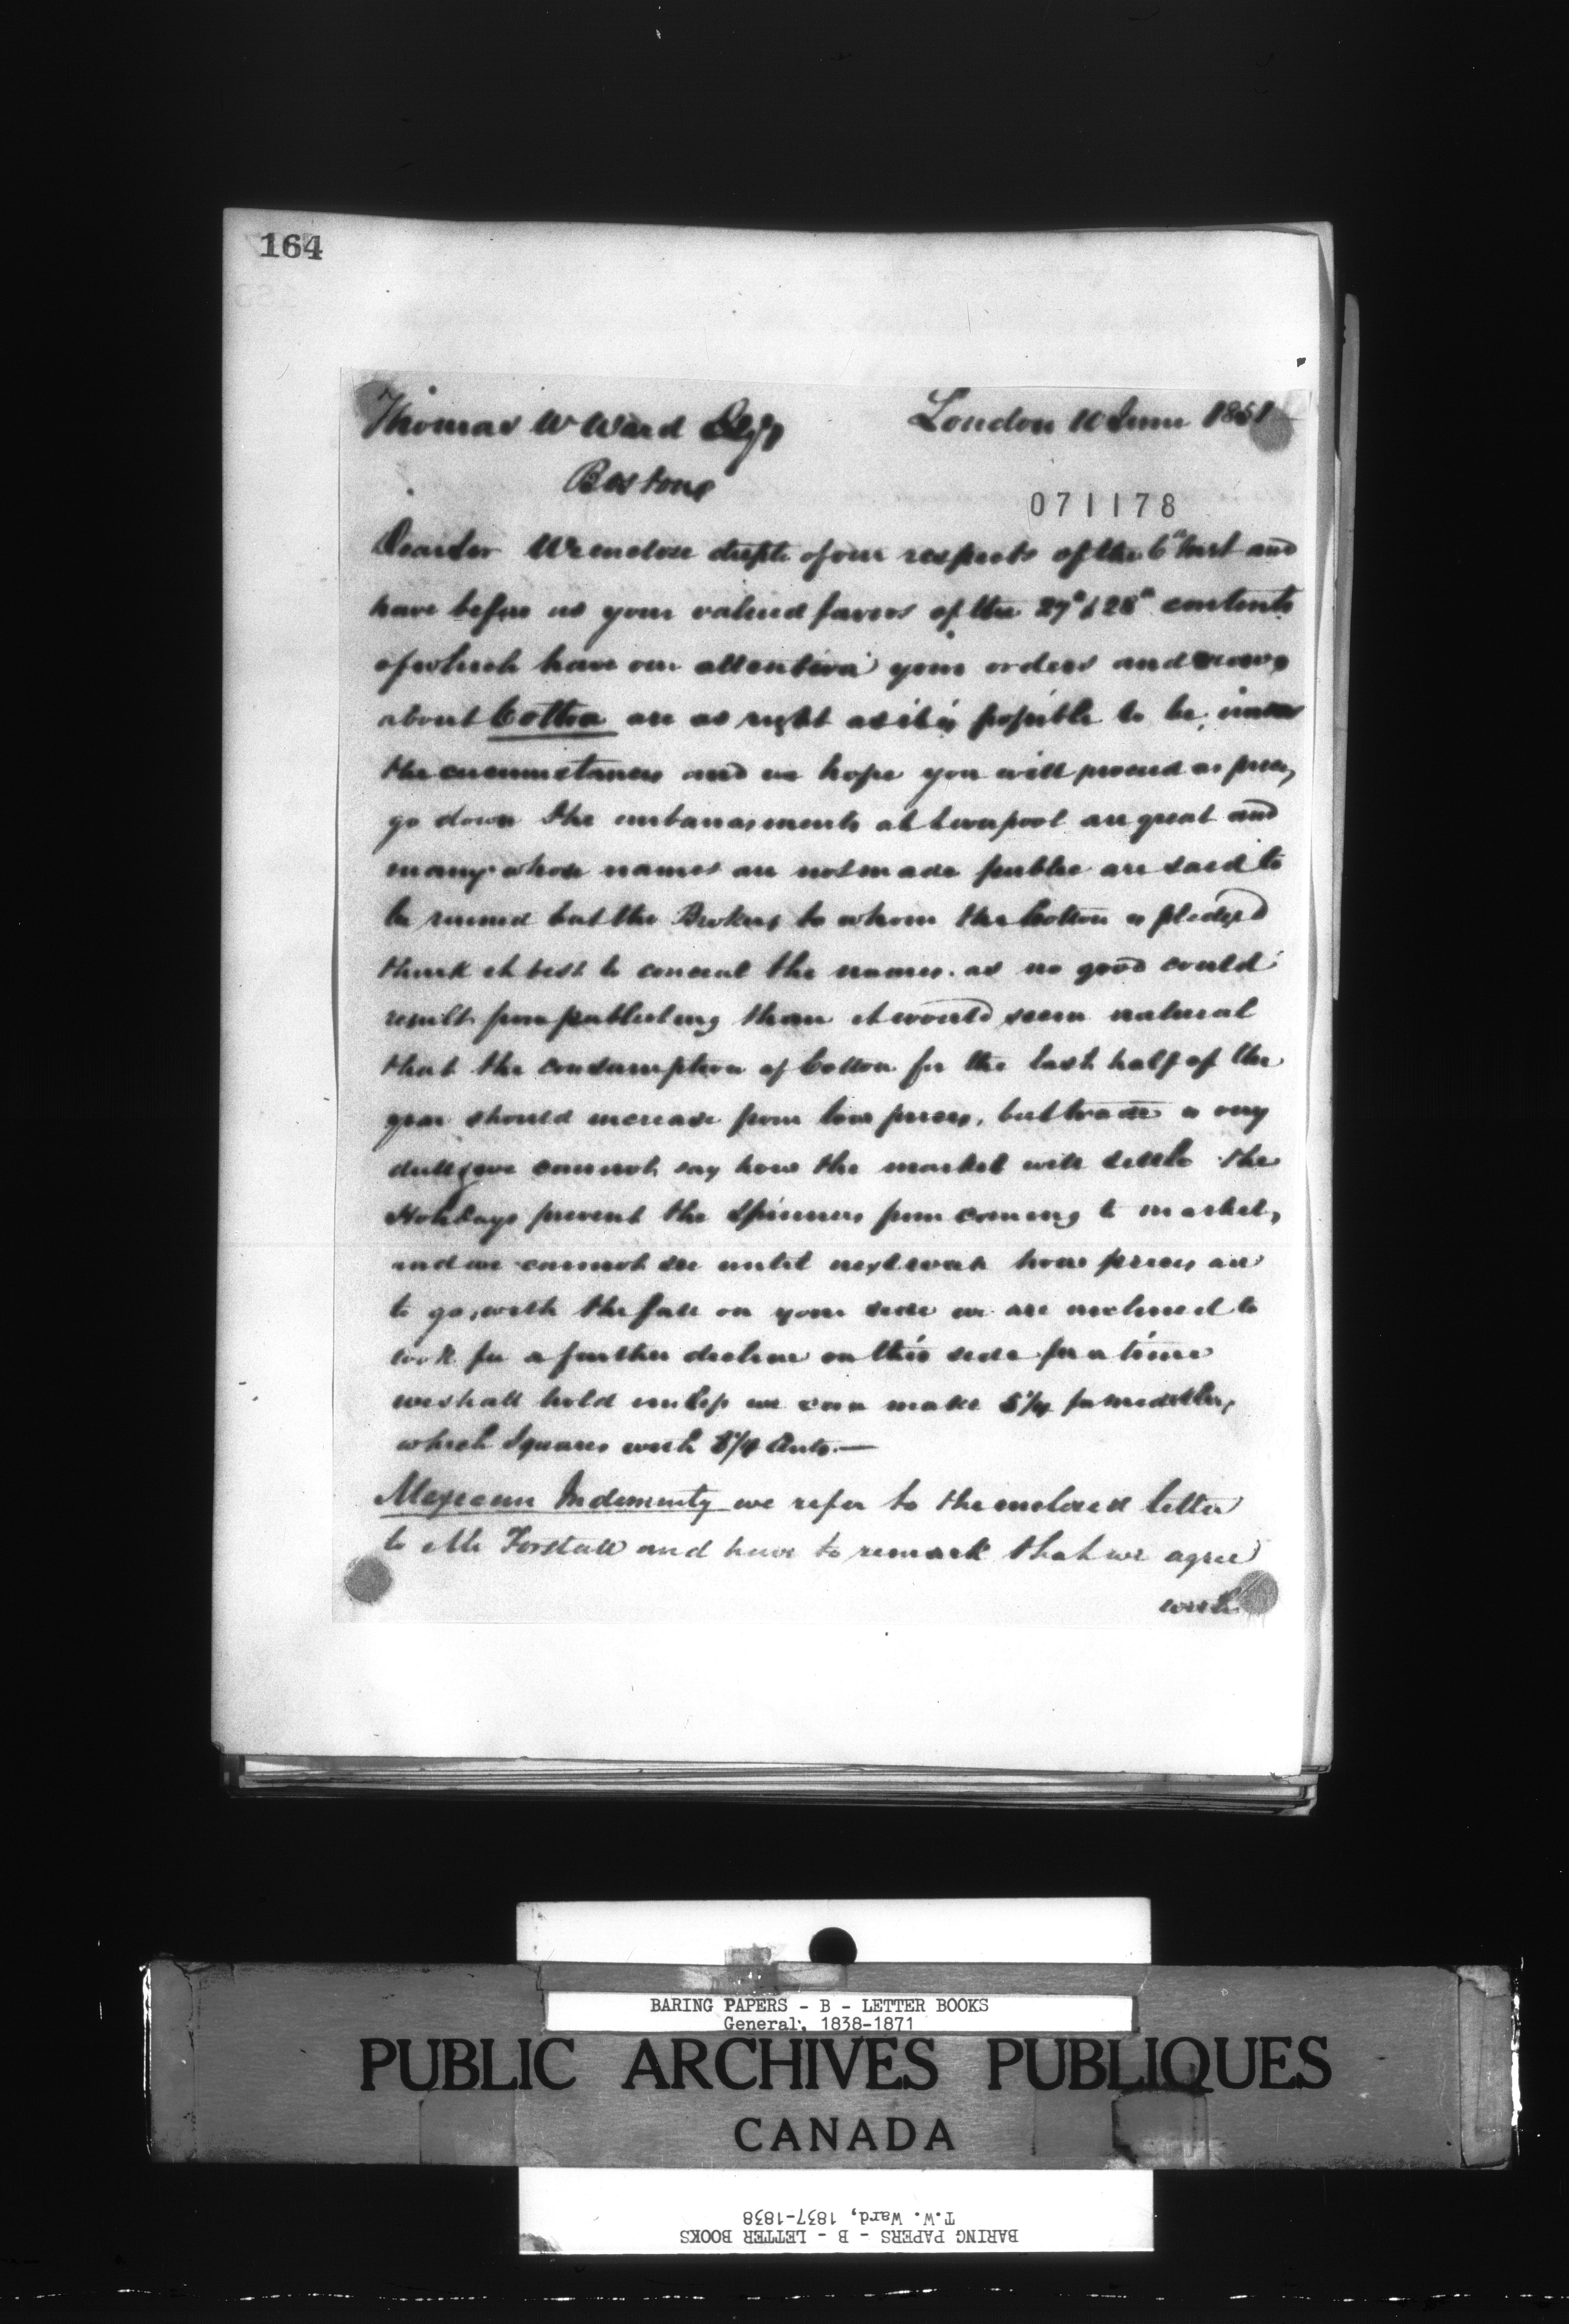 164
Thomas W Ward Esqr London 10 June 1851
Boston
071178
Dear Sir We enclose duplte of our respects of the 6th Inst and
have before us your valued favors of the 27th & 28th contents
of which have our attention your orders and views
about Cotton are as right as it is possible to be, under
the circumstances and we hope you will proceed as prices
go down The embarrasments at Liverpool are great and
many whose names are not made public are said to
be ruined but the Brokers to whom the Cotton is pledged
think it best to conceal the names. as no good could
result from publishing them it would seem natural
that the consumption of Cotton for the last half of the
year should increase from low prices, but trade is very
dull & we cannot say how the market will settle the
Holidays prevent the Spinners from coming to market,
and we cannot see until next week how prices are
to go, with the fall on your side we are inclined to
look for a further decline on this side for a time
we shall hold unless we can make 5¼ for middling,
which squares with 8¼
Mexican Indemnity we refer to the enclosed letter
to Mr Forstall and have to remark that we agree
with
BARING PAPERS - B - LETTER BOOKS
General, 1838-1871
PUBLIC ARCHIVES PUBLIQUES
CANADA
BARING PAPERS - B - LETTER BOOKS
T.W. Ward, 1837-1838